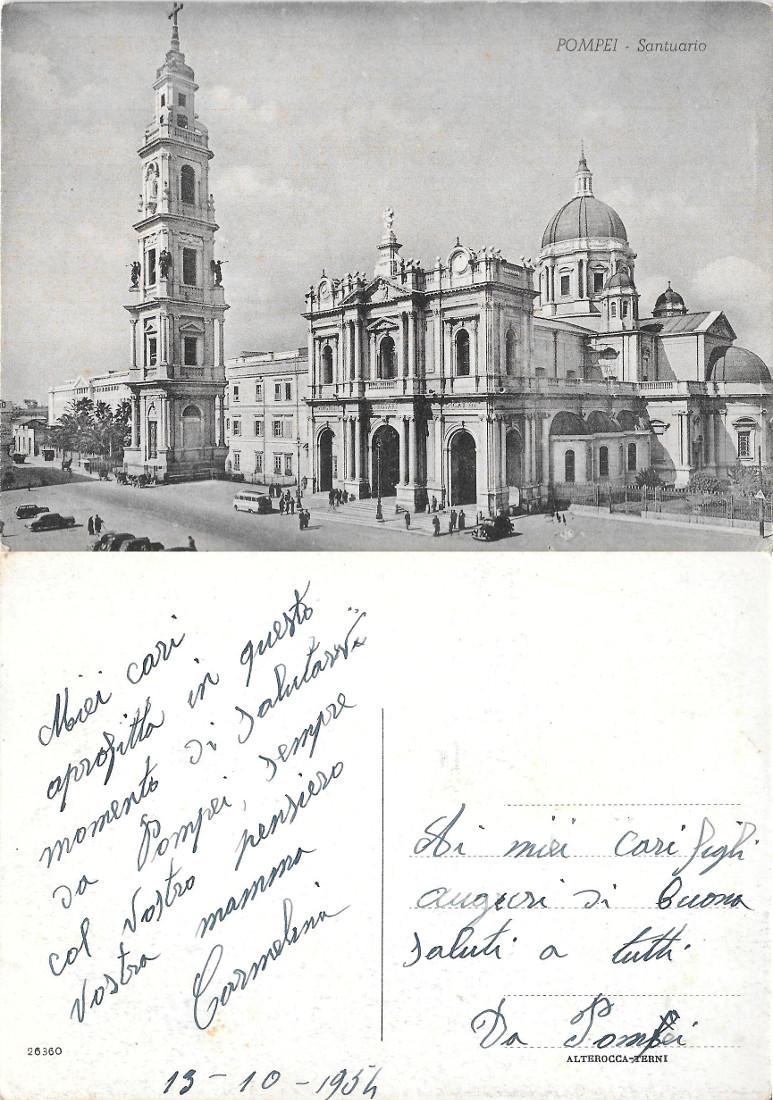 POMPEI - Santuario
Miei cari
aprofitta in questo
momento di salutarvi
da Pompei, sempre
col vostro pensiero
vostra mamma
Carmelina
Ai miei cari figli
auguri di buona
saluti a tutti
Da Pompei
ALTEROCCA-TERNI
26360
13-10-1954